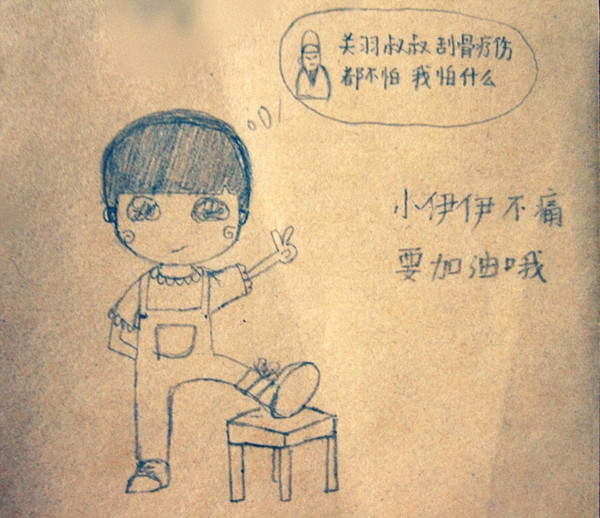 关羽叔叔刮骨疗伤
都不怕 我怕什么
小伊伊不痛
要加油哦